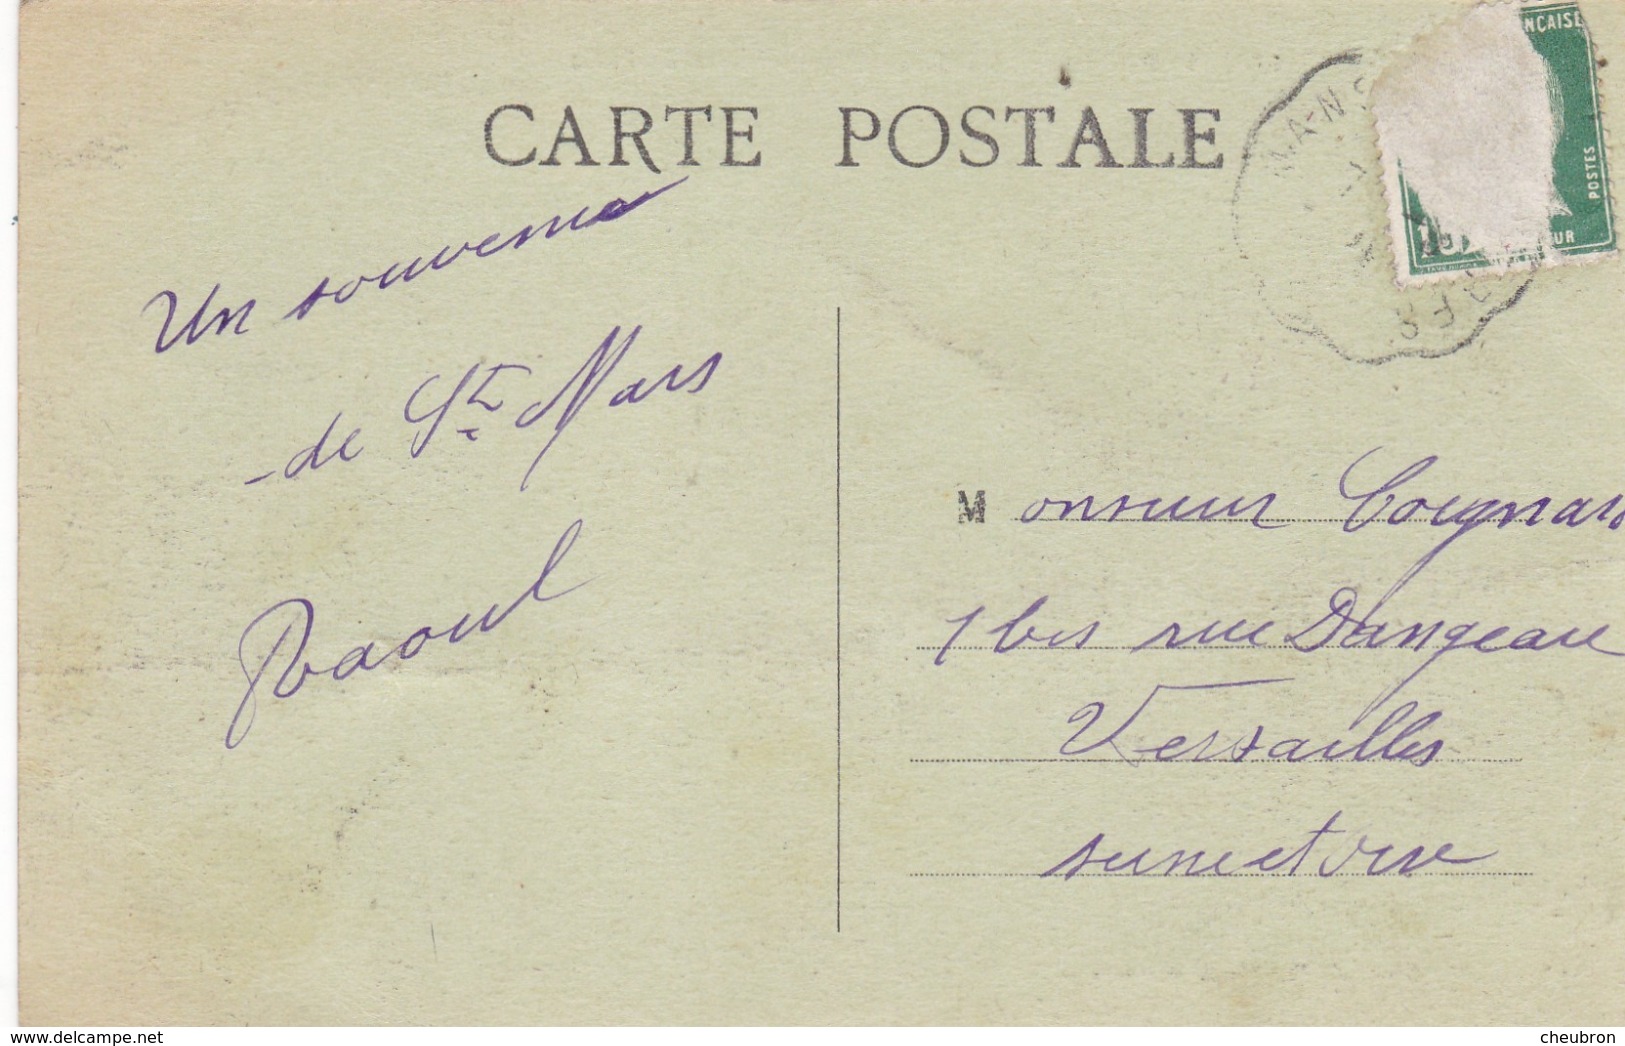 CARTE POSTALE
Un souvenir
de St Mars
Raoul
Monsieur Coignard
1 bis rue Dangeau
Versailles
seine et oise
NÇAISE
POSTES
UR
MANS
www.delcampe.net
cheubron